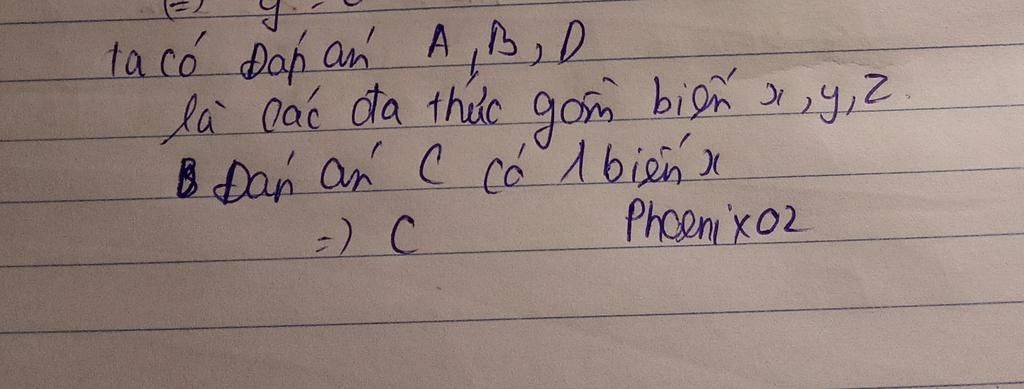 ta có Đáp án A, B, D
là các đa thức gồm biến x, y, z.
Đáp án C có 1 biến x
=) C Phoenix02